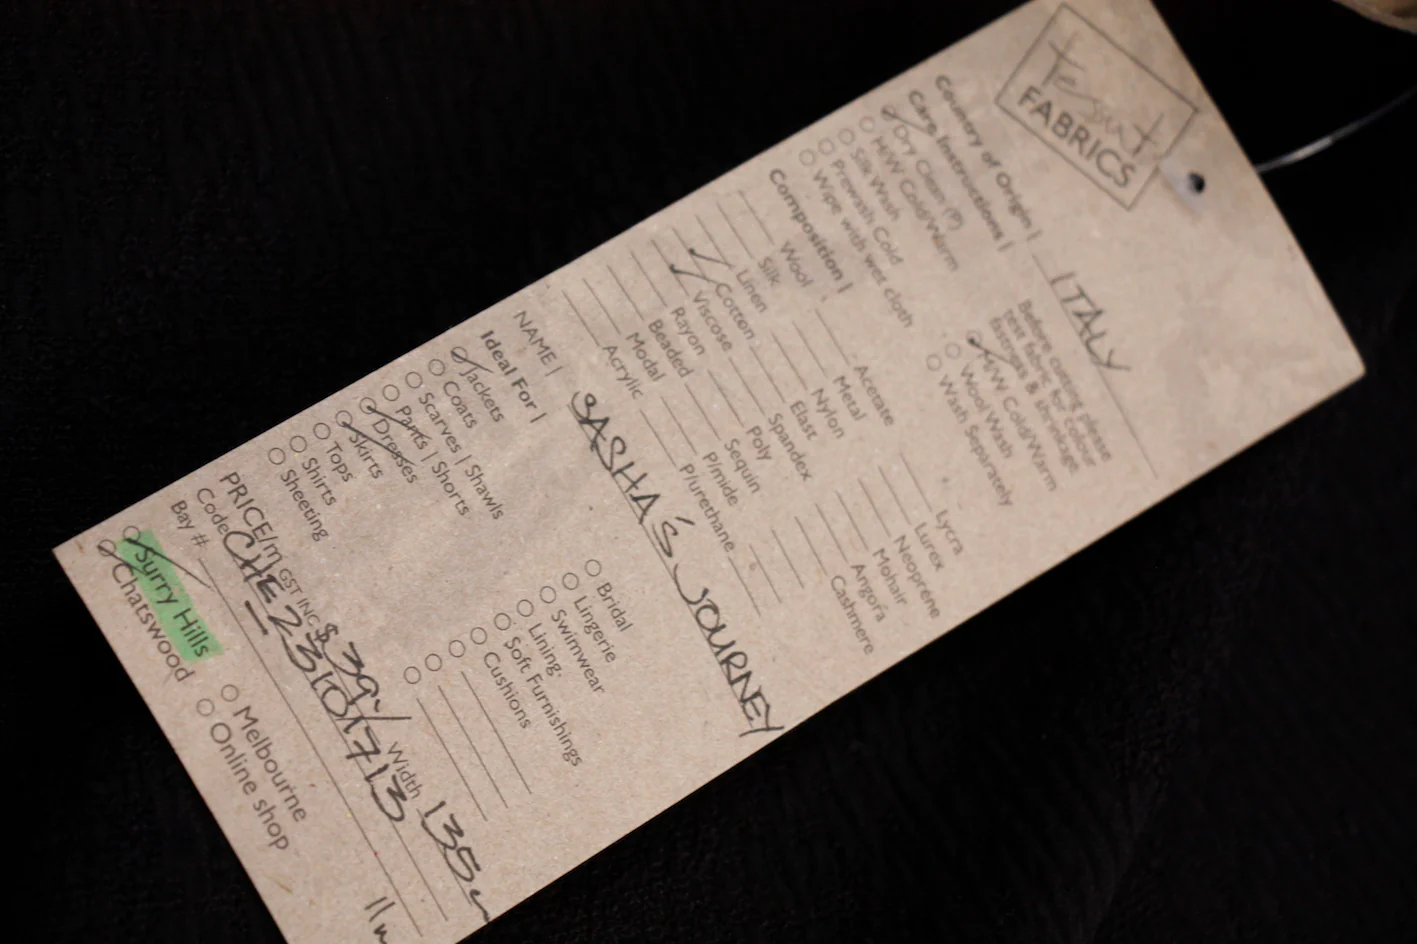 Tessuti
FABRICS
Country of Origin | ITALY
Care Instructions |
Dry Clean (P)
H/W Cold/Warm
Silk Wash
Prewash Cold
Wipe with wet cloth
Before cutting please
test fabric for colour
fastness & shrinkage
H/W Cold/Warm
Wool Wash
Wash Separately
Composition |
Wool
Silk
Linen
Cotton
Viscose
Rayon
Beaded
Modal
Acrylic
Acetate
Metal
Nylon
Elast
Spandex
Poly
Sequin
P/mide
P/urethane
Lycra
Lurex
Neoprene
Mohair
Angora
Cashmere
NAME | SASHA'S JOURNEY
Ideal For |
Jackets
Coats
Scarves | Shawls
Pants | Shorts
Dresses
Skirts
Tops
Shirts
Sheeting
Bridal
Lingerie
Swimwear
Lining
Soft Furnishings
Cushions
PRICE/m GST INC $39 Width 135
Code CHE
Bay #
Surry Hills
Chatswood
Melbourne
Online shop